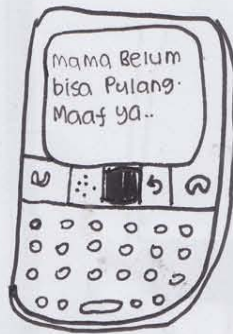 mama Belum
bisa Pulang.
Maaf ya..